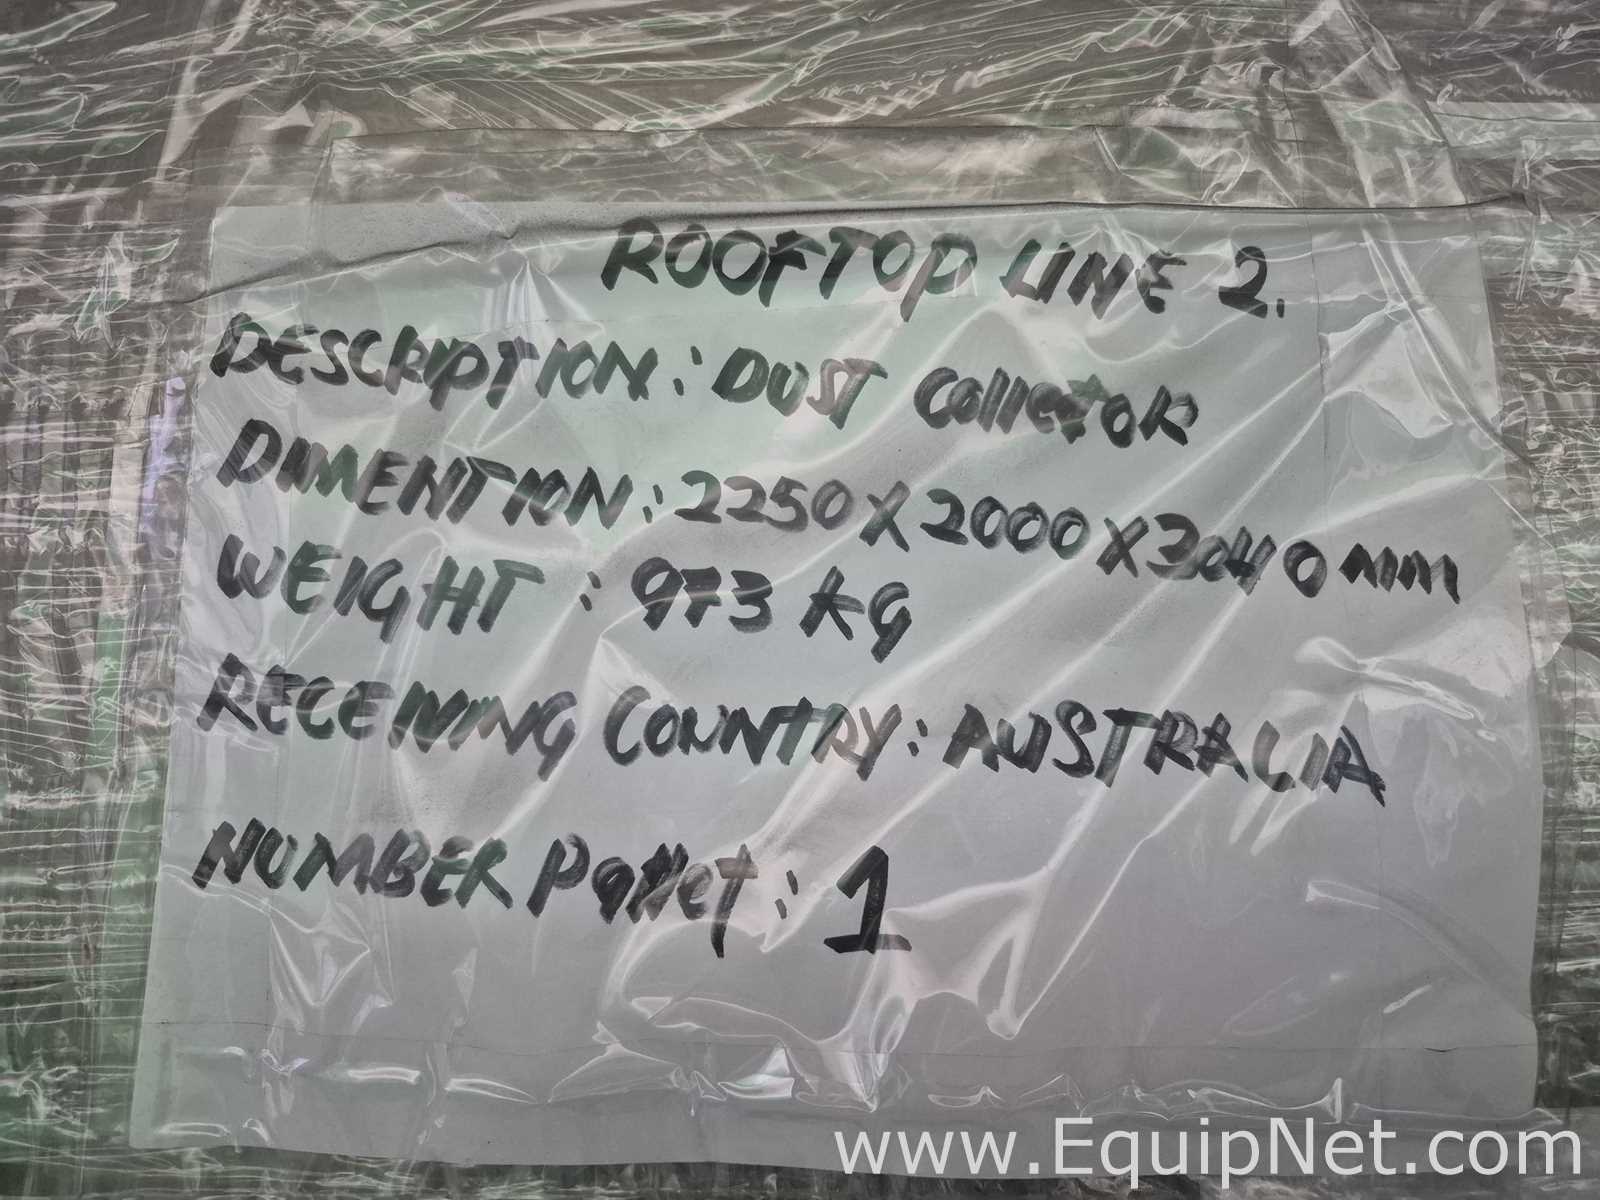 ROOFTOP LINE 2.
DESCRIPTION: DUST COllECTOR
DIMENTION: 2250 X 2000 X 3040 mm
WEIGHT : 973 kg
RECEIVING COUNTRY: AUSTRALIA
NUMBER Pallet : 1
www.EquipNet.com